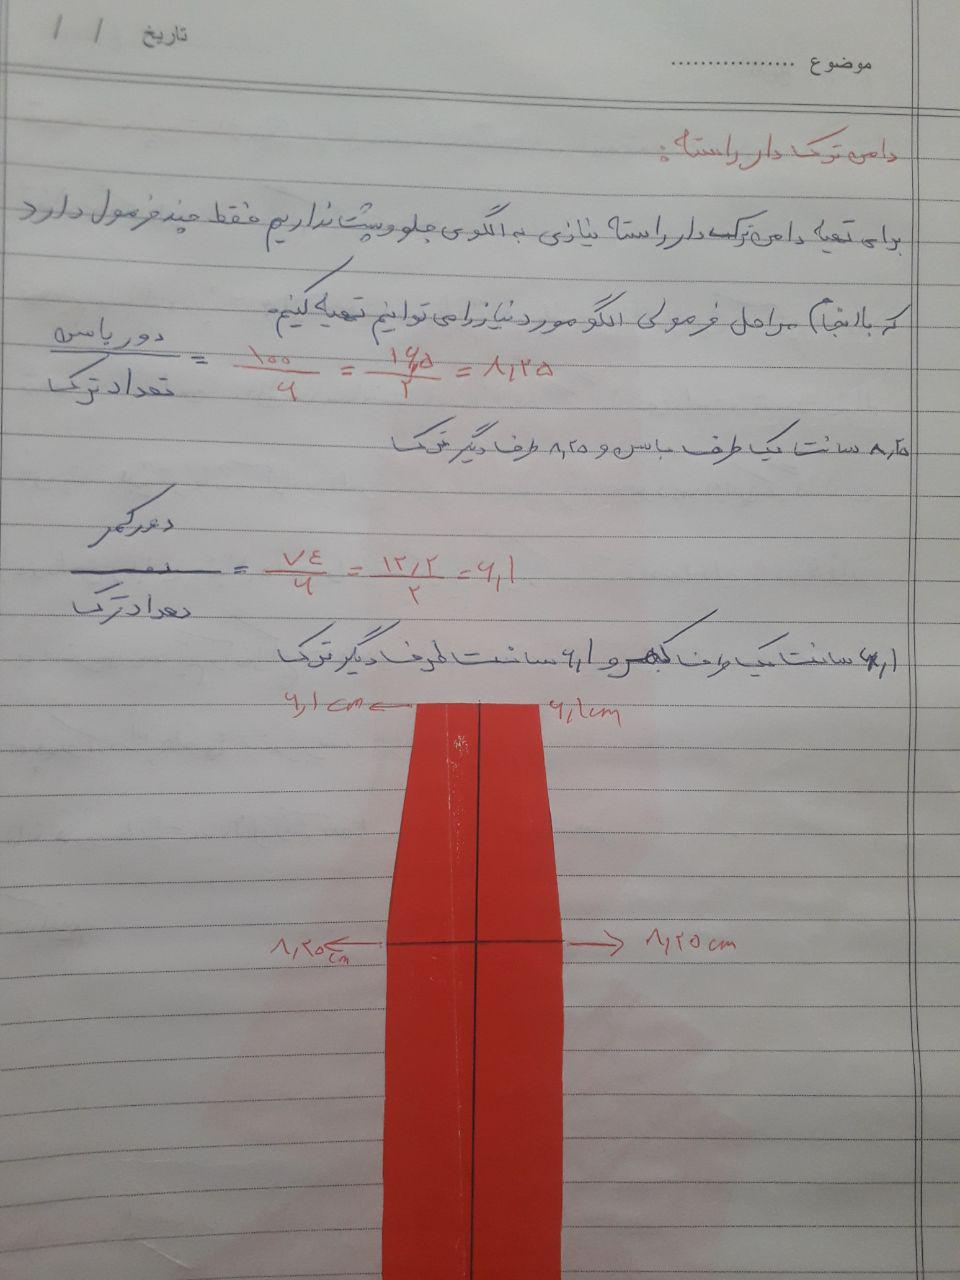 تاریخ / /
موضوع .................
دامن ترک دار راسته :
برای تهیه دامن ترک دار راسته نیازی به الگوی جلو و پشت نداریم فقط چند فرمول دارد
که با انجام مراحل فرمولی الگو مورد نیاز را می توانیم تهیه کنیم.
دور باسن / تعداد ترک = ۱۰۰ / ۶ = ۱۶٫۵ / ۲ = ۸٫۲۵
۸٫۲۵ سانت یک طرف باسن و ۸٫۲۵ طرف دیگر ترک
دور کمر / تعداد ترک = ۷٤ / ۶ = ۱۲٫۲ / ۲ = ۶٫۱
۶٫۱ سانت یک طرف کمر و ۶٫۱ سانت طرف دیگر ترک
۶٫۱ cm ← ۶٫۱ cm
۸٫۲۵ cm ← → ۸٫۲۵ cm